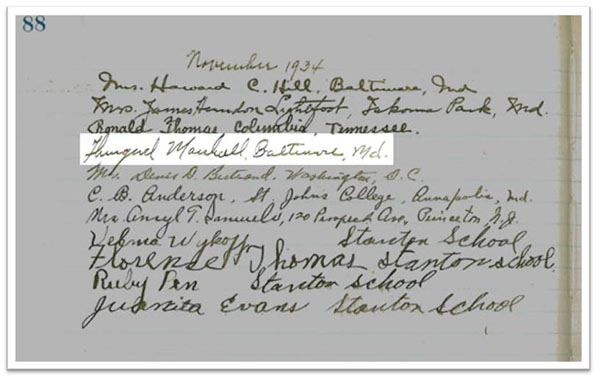 88
November 1934
Mrs. Howard C. Hill, Baltimore, Md
Mrs. James Herndon Lightfoot, Takoma Park, Md.
Ronald Thomas, Columbia, Tennessee.
Thurgood Marshall, Baltimore, Md.
Denis D. Bertrand, Washington, D.C.
C. B. Anderson, St. Johns College, Annapolis, Md.
T. Samuels, 120 Prospect Ave, Princeton N.J.
Velma Wykoff Stanton School
Florense Thomas Stanton school
Ruby Pen Stanton school
Juanita Evans Stanton School